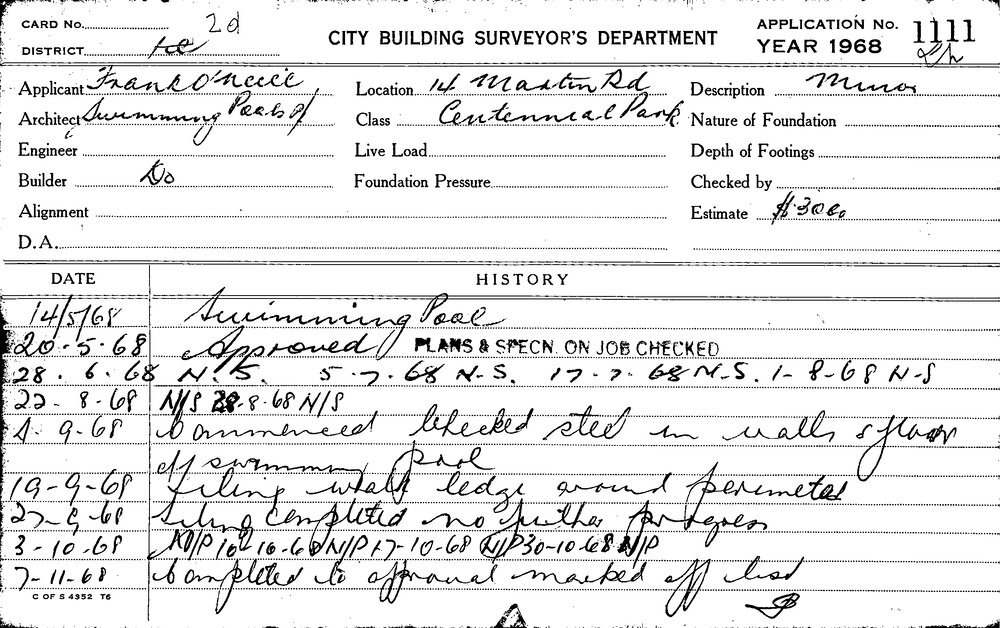 CARD No. 2d
APPLICATION No. 1111
DISTRICT
CITY BUILDING SURVEYOR'S DEPARTMENT
YEAR 1968
Applicant Frank O'Neill
Location 14 Martin Rd
Description Minor
Architect Swimming Pools of
Class Centennial Park
Nature of Foundation
Engineer
Live Load
Depth of Footings
Builder Do
Foundation Pressure
Checked by
Alignment
Estimate $3000
D.A.
DATE HISTORY
14/5/68 Swimming Pool
20-5-68 Approved PLANS & SPECN. ON JOB CHECKED
28.6.68 N.S. 5-7-68 N-S. 17-7-68 N-S. 1-8-68 N-S
22-8-68 N/S 28-8-68 N/S
4-9-68 Commenced Checked steel in walls & floor
of swimming pool
19-9-68 tiling walk ledge around perimeter
27-9-68 tiling completed no further progress
3-10-68 N/P 10-10-68 N/P 17-10-68 N/P 30-10-68 N/P
7-11-68 Completed to approval marked off list
C OF S 4352 T6